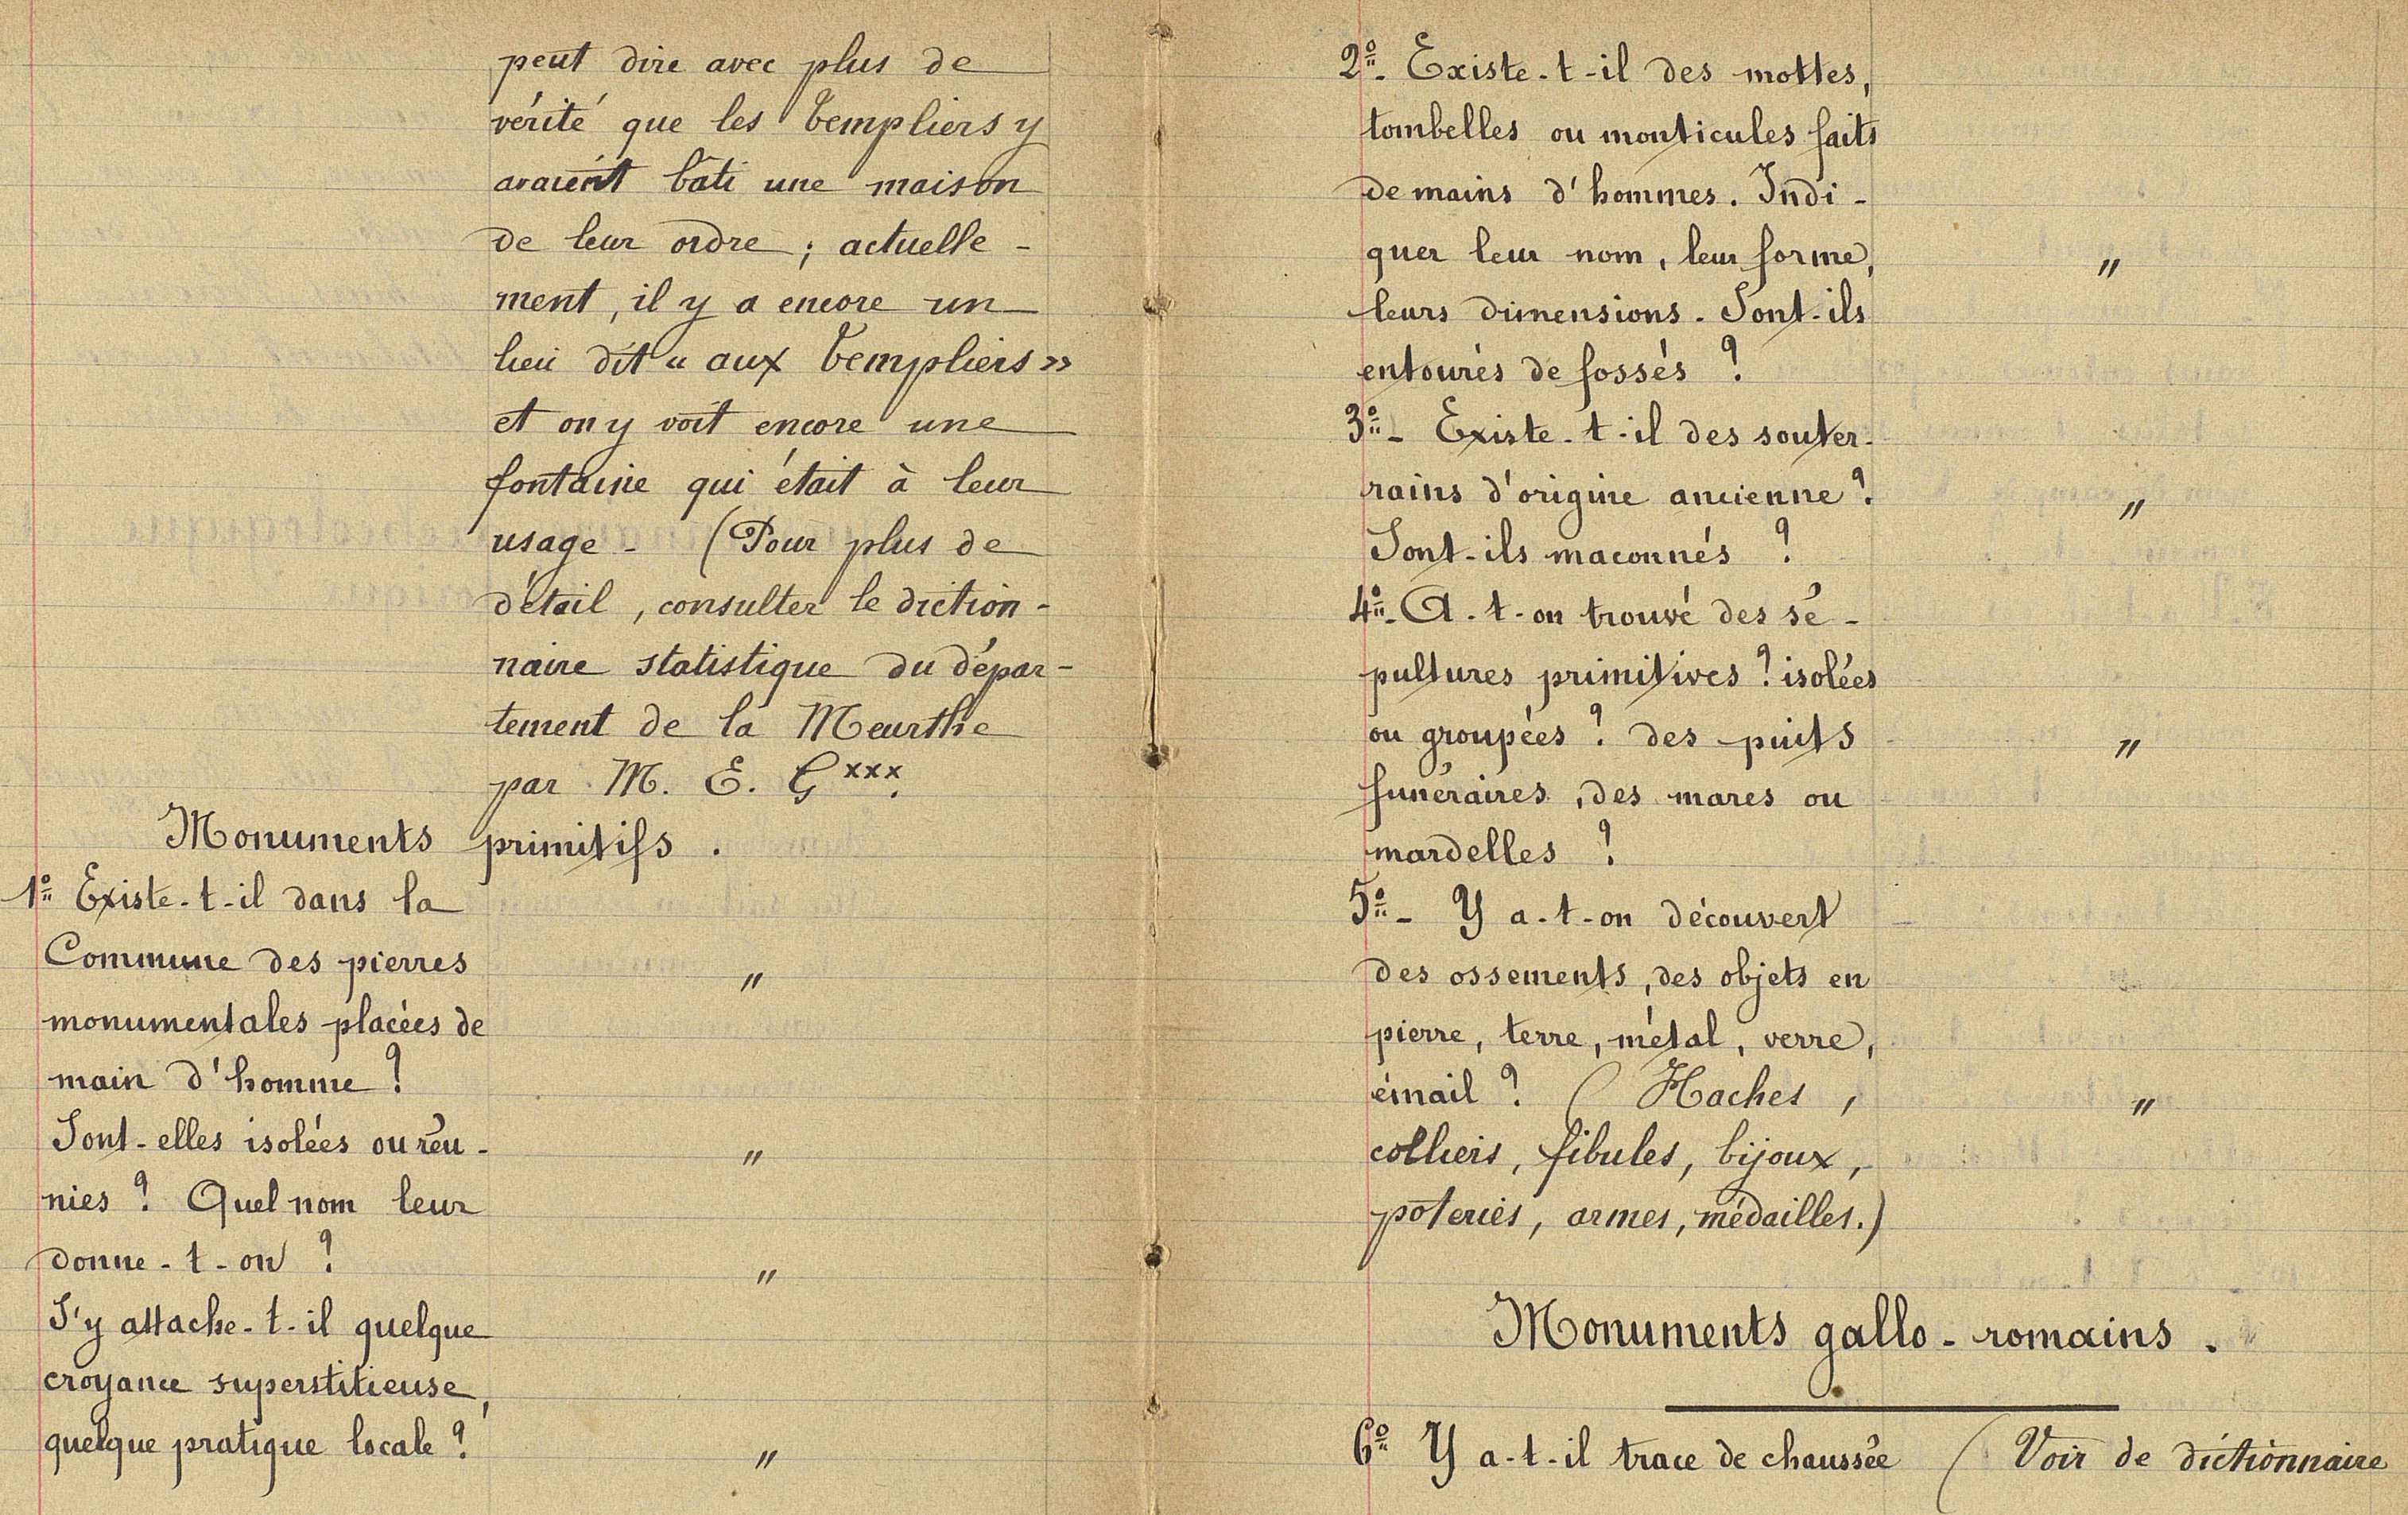 peut dire avec plus de
vérité que les Templiers y
avaient bâti une maison
de leur ordre ; actuelle -
ment, il y a encore un
lieu dit « aux Templiers »
et on y voit encore une
fontaine qui était à leur
usage - (Pour plus de
détail, consulter le diction -
naire statistique du dépar -
tement de la Meurthe
par M. E. G xxx.
Monuments primitifs .
1º Existe-t-il dans la
Commune des pierres
monumentales placées de "
main d'homme ?
Sont-elles isolées ou réu - "
nies ? Quel nom leur
donne-t-on ? "
S'y attache-t-il quelque
croyance superstitieuse,
quelque pratique locale ? "
2º- Existe-t-il des mottes,
tombelles ou monticules faits
de mains d'hommes. Indi -
quer leur nom, leur forme, "
leurs dimensions. Sont-ils
entourés de fossés ?
3º- Existe-t-il des souter-
rains d'origine ancienne ? "
Sont-ils maconnés ?
4º- A-t-on trouvé des sé -
pultures primitives ? isolées
ou groupées ? des puits "
funéraires, des mares ou
mardelles ?
5º- Y a-t-on découvert
des ossements, des objets en
pierre, terre, métal, verre,
émail ? ( Haches , "
colliers, fibules, bijoux,
poteries, armes, médailles.)
Monuments gallo-romains .
6º Y a-t-il trace de chaussée ( Voir de dictionnaire